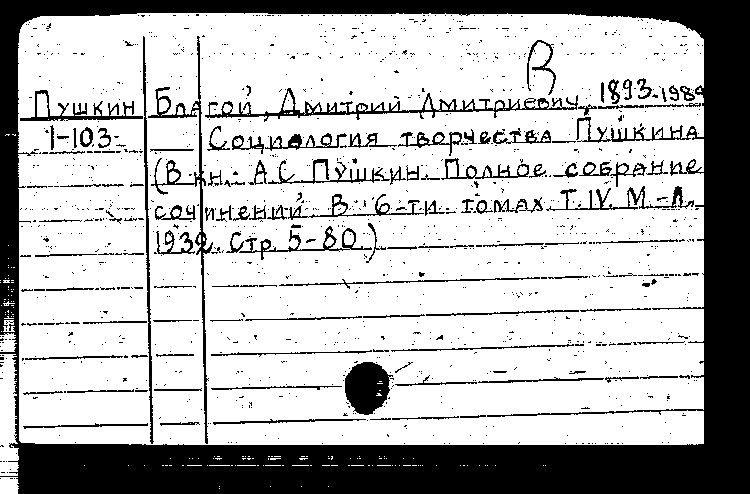 В
Пушкин Благой, Дмитрий Дмитриевич, 1893-1984
1-103- Социология творчества Пушкина
(В кн.: А.С. Пушкин. Полное собрание
сочинений. В 6-ти томах. Т. IV. М.-Л.
1932. Стр. 5-80.)